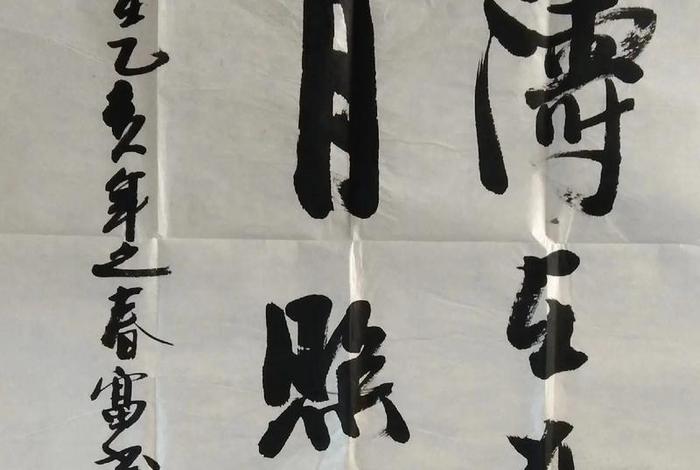 濤互
月照
乙亥年之春富